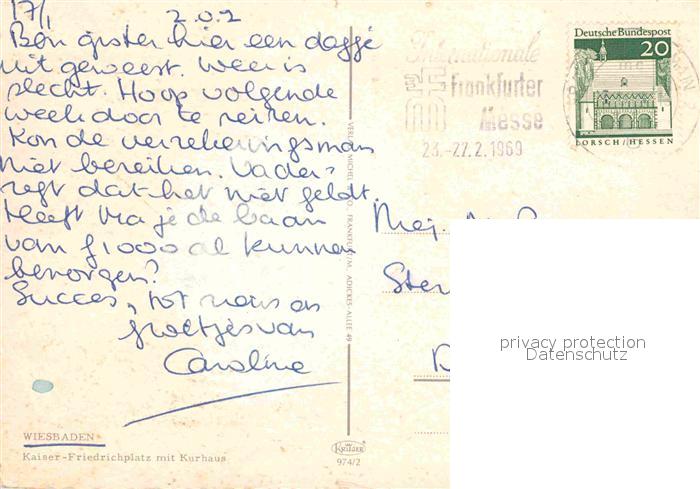 17/1 2.0.2
Ben gister hier een dagje
uit geweest. Weer is
slecht. Hoop volgende
week door te reizen.
Kon de verzekeringsman
niet bereiken. Vader
zegt dat het niet geldt.
Heeft Ma je de baan
van f 1000 al kunnen
bezorgen?
Succes, tot ziens en
groetjes van
Caroline
WIESBADEN
Kaiser-Friedrichplatz mit Kurhaus
VERLAG MICHEL & CO. FRANKFURT/M. ADICKES-ALLEE 49
KRÜGER
974/2
Internationale
Frankfurter
Messe
23.-27.2.1969
Deutsche Bundespost
20
LORSCH/HESSEN
Mej.
privacy protection
Datenschutz